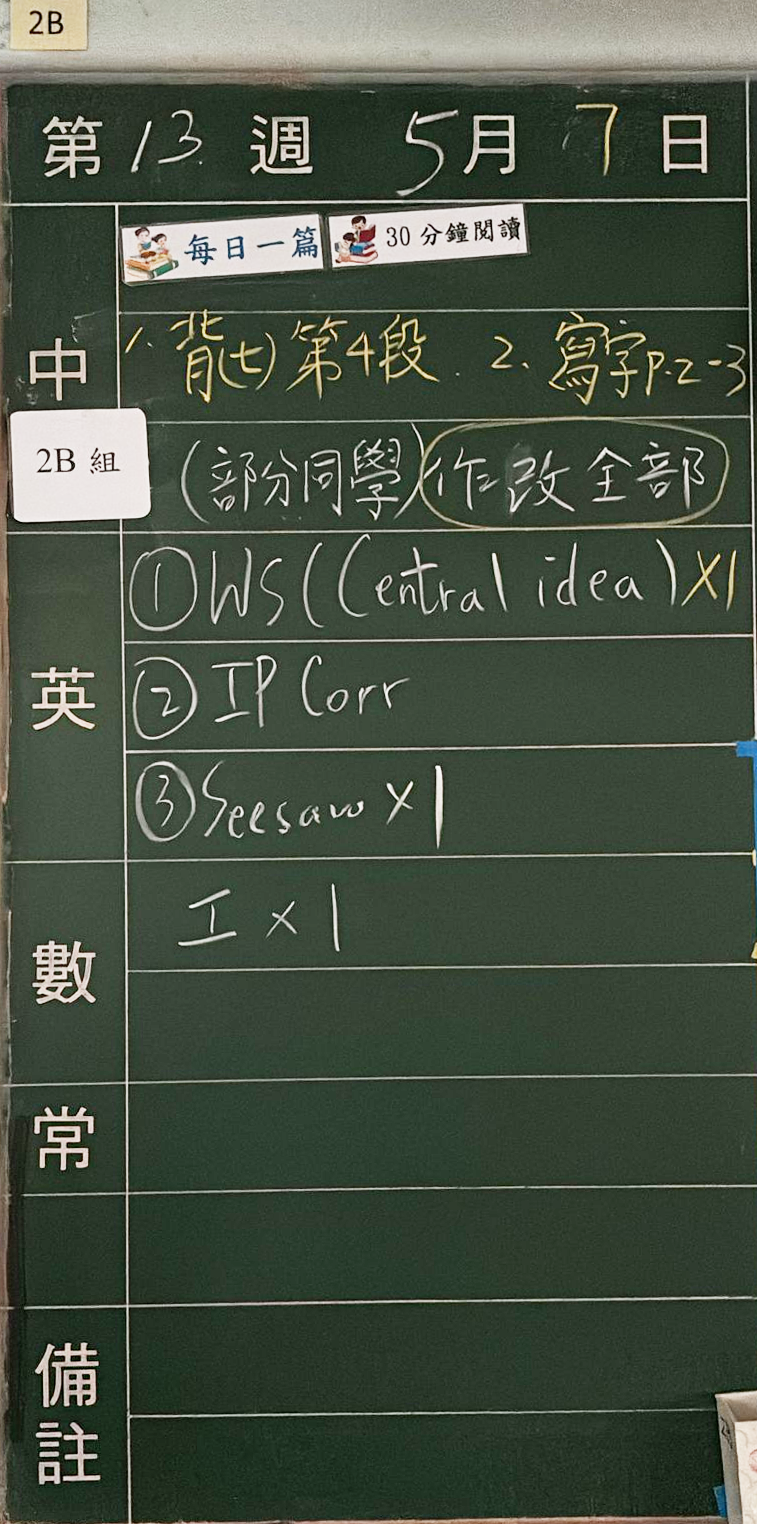 2B
第 13 週 5月 7 日
每日一篇 30分鐘閱讀
中
1. 背(七)第4段. 2. 寫字P.2-3
2B 組
(部分同學)作改全部
英
①WS(Central idea)X1
②IP Corr
③Seesaw X1
數
工 X 1
常
備註